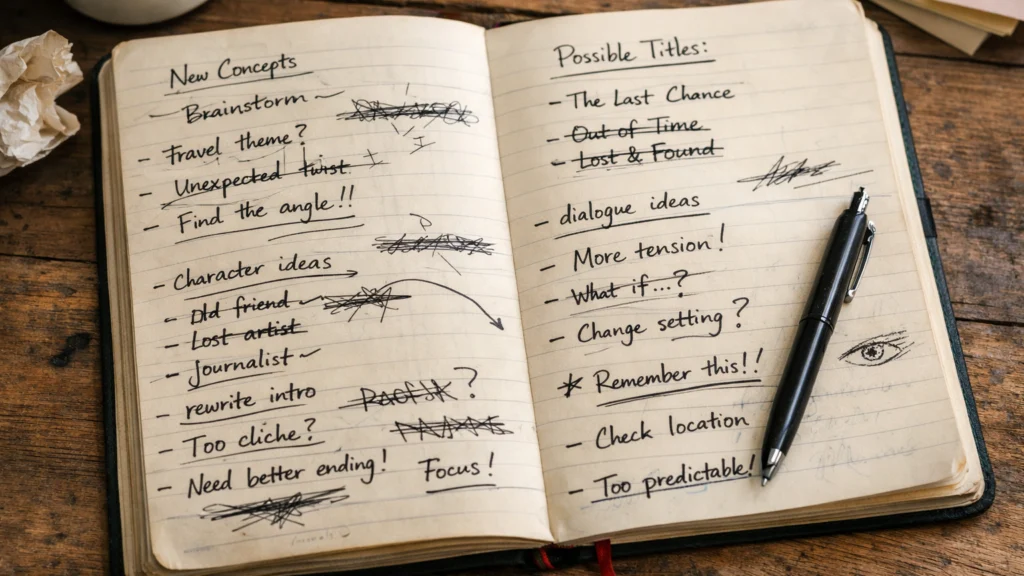 New Concepts
- Brainstorm -
- Travel theme?
- Unexpected twist
- Find the angle!!
- Character ideas
- Old friend -
- Lost artist
- Journalist -
- rewrite intro
- Too cliche?
- Need better ending!
Focus!
Possible Titles:
- The Last Chance
- Out of Time
- Lost & Found
- dialogue ideas
- More tension!
- What if...?
- Change setting?
* Remember this!!
- Check location
- Too predictable!